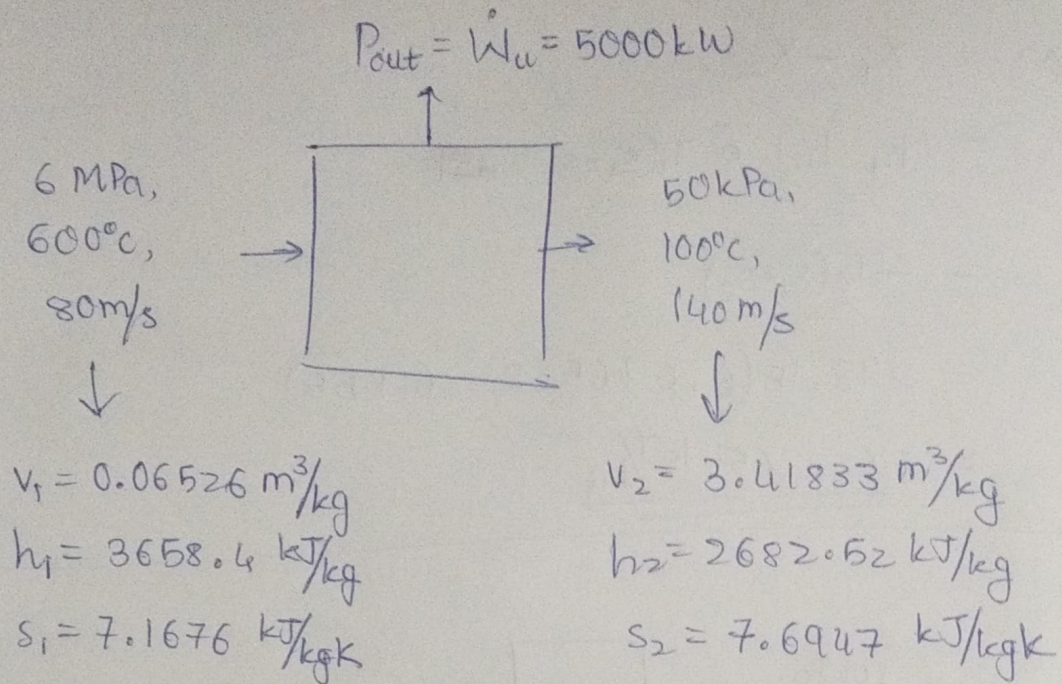 Pout = Ẇu = 5000kW
6 MPa,
600°c,
80m/s
50kPa,
100°c,
140 m/s
V₁ = 0.06526 m³/kg
h₁ = 3658.4 kJ/kg
S₁ = 7.1676 kJ/kgK
V₂ = 3.41833 m³/kg
h₂ = 2682.52 kJ/kg
S₂ = 7.6947 kJ/kgK